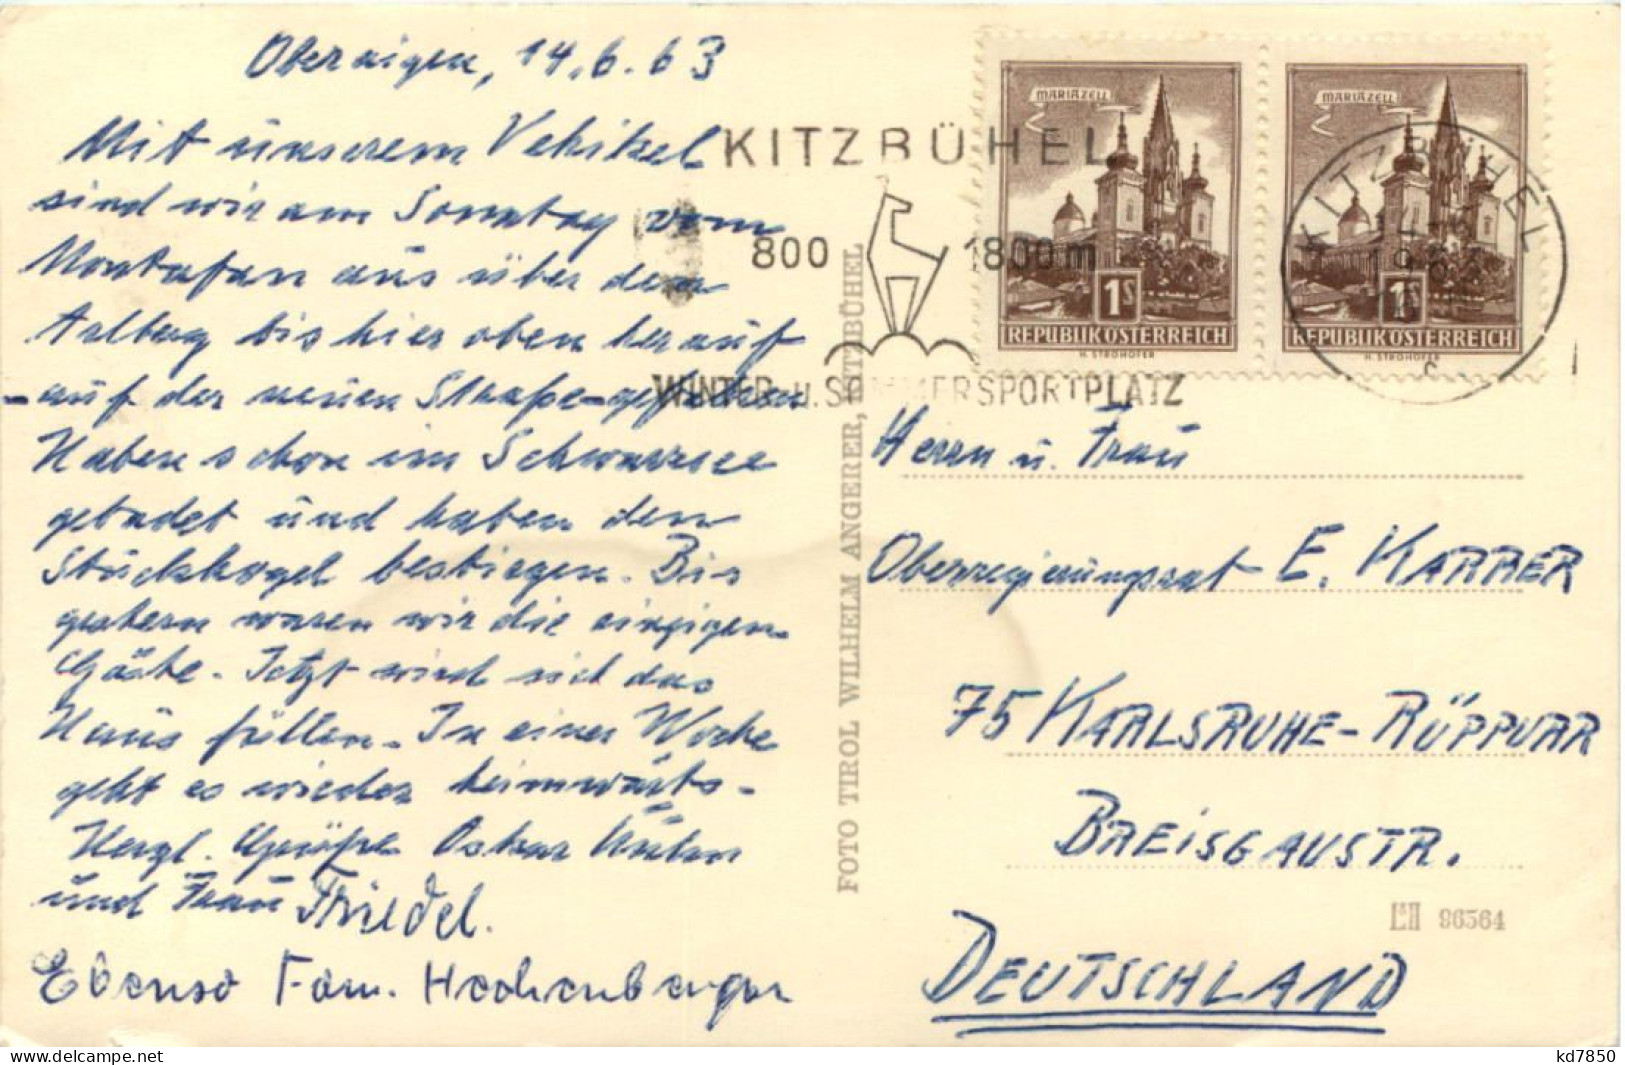 Oberaigen, 14.6.63
Mit unserem Vehikel
sind wir am Sonntag vom
Montafon aus über den
Arlberg bis hier oben herauf
- auf der neuen Straße - gefahren
Haben schon im Schwarzsee
gebadet und haben den
Stuckkogel bestiegen. Bis
gestern waren wir die einzigen
Gäste. Jetzt wird sich das
Haus füllen. In einer Woche
geht es wieder heimwärts -
Herzl. Grüße Oskar
und Frau Friedel.
Ebenso Fam. Hachenberger
KITZBÜHEL
800 1800 m
WINTER- u. SOMMERSPORTPLATZ
MARIAZELL
1S
REPUBLIK ÖSTERREICH
H. STROHOFER
MARIAZELL
1S
REPUBLIK ÖSTERREICH
H. STROHOFER
KITZBÜHEL
c
FOTO TIROL WILHELM ANGERER, KITZBÜHEL
Herrn u. Frau
Oberregierungsrat E. KARRER
75 KARLSRUHE-RÜPPURR
BREISGAUSTR.
96364
DEUTSCHLAND
www.delcampe.net
kd7850